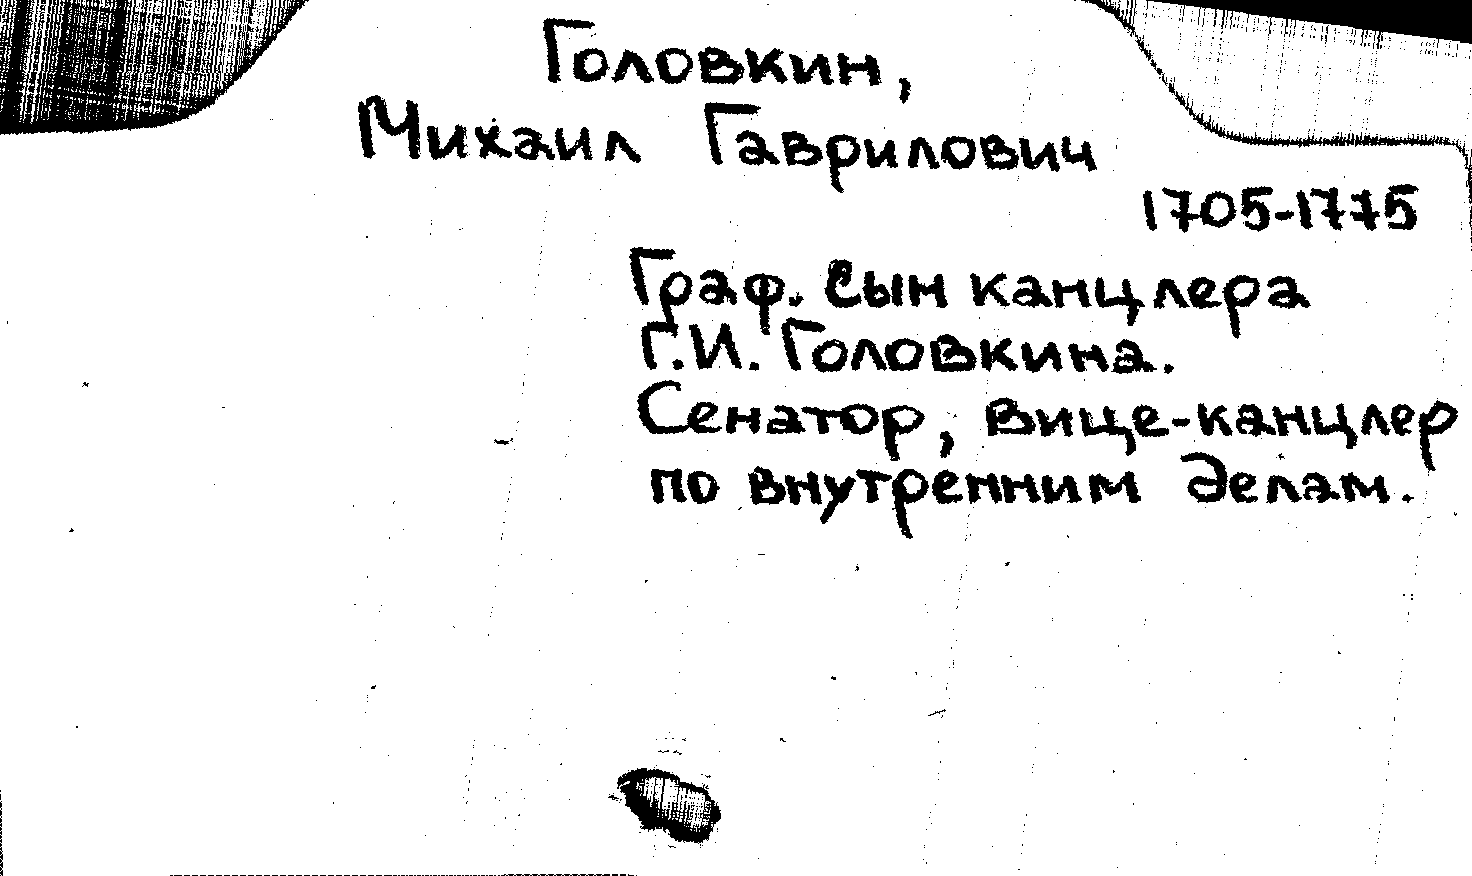 Головкин,
Михаил Гаврилович
1705-1775
Граф. Сын канцлера
Г.И. Головкина.
Сенатор, вице-канцлер
по внутренним делам.